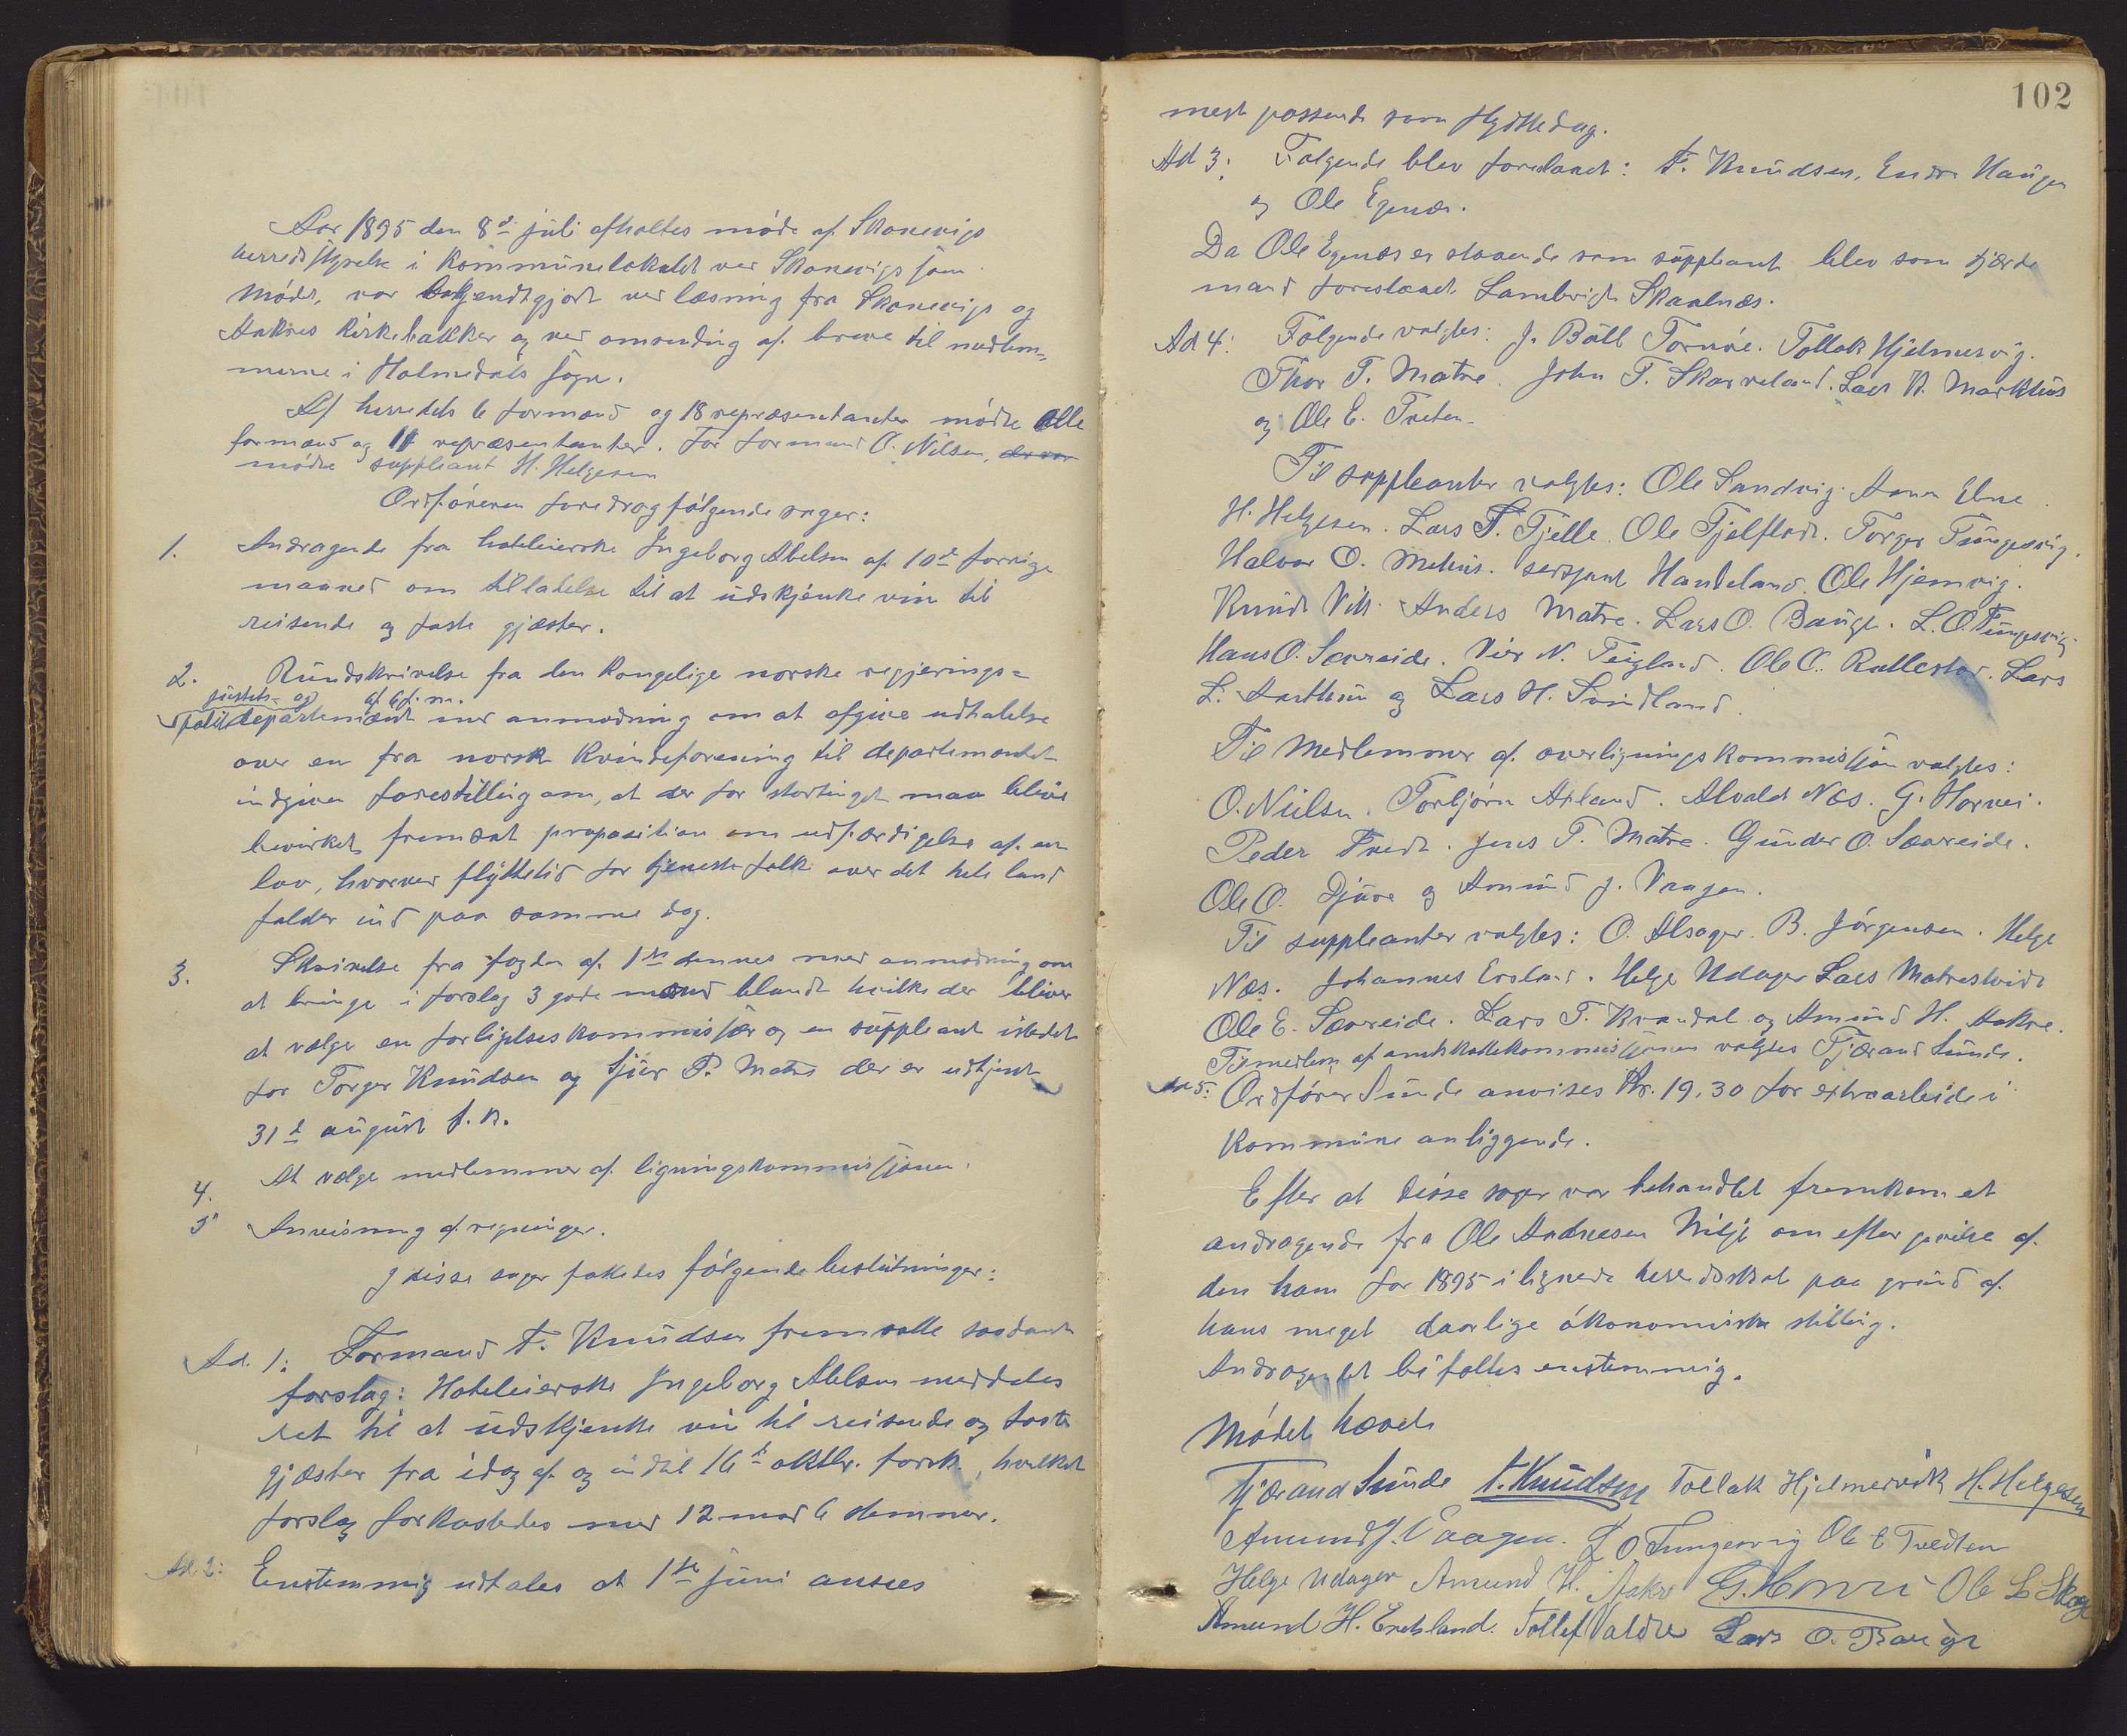 Aar 1895 den 8de juli afholtes møde af Skonevigs
herredsstyrelse i kommunelokalet ved Skonevigs søen.
Mødet, var bekjendtgjort ved læsning fra Skonevigs og
Aakres Kirkebakker og ved omsending af breve til medlem=
merne i Holmedals sogn.
Af herredets 6 formænd og 18 repræsentanter mødte alle
formænd og 11 repræsentanter. For formand O. Nilsen, der var
mødte suppleant H. Helgesen
Ordføreren foredrog følgende sager:
1. Andragende fra hoteleierske Ingeborg Abelsen af 10de forrige
maaned om tilladelse til at udskjenke vin til
reisende og faste gjæster.
2. Rundskrivelse fra den kongelige norske regjerings=
justits- og af 6 f. m.
politidepartement med anmodning om at afgive udtalelse
over en fra norsk Kvindeforening til departementet
indgiven forestilling om, at der for stortinget maa blive
bevirket fremsat proposition om udfærdigelse af en
lov, hvorved flyttetid for tjenestefolk over det hele land
falder ind paa samme dag.
3. Skrivelse fra fogden af 1ste dennes med anmodning om
at bringe i forslag 3 gode mænd blandt hvilke der bliver
at vælge en forligelseskommissær og en suppleant istedet
for Torger Knudsen og Sjur P. Matre der er udtjent
31te august f. k.
4. At vælge medlemmer af ligningskommissjonen.
5 Anvisning af regninger.
I disse sager fattedes følgende beslutninger:
Ad. 1: Formand T. Knudsen fremsatte saadant
forslag: Hoteleierske Ingeborg Abelsen meddeles
ret til at udskjenke vin til reisende og faste
gjæster fra idag af og indtil 16de oktbr. førsk., hvilket
forslag forkastedes med 12 mod 6 stemmer.
Ad 2: Enstemmig udtales at 1ste juni ansees
102
mest passende som flyttedag.
Ad 3: Følgende blev foreslaaet: T. Knudsen, Endre Haugen
og Ole Egenæs.
Da Ole Egenæs er staaende som suppleant blev som fjærde
mand foreslaaet Lambrigt Skaalnæs.
Ad 4: Følgende valgtes: J. Böll Tornøe. Tollak Hjelmervig.
Thor T. Matre. John T. Skarveland. Lars K. Markhus
og Ole E. Tveten.
Til suppleanter valgtes: Ole Sandvig. Aamu Ebne.
H. Helgesen. Lars T. Tjelle. Ole Fjelflodt. Torger Tungesvig.
Halvor O. Mehus. sersjant Handeland. Ole Hjemvig.
Knudt Vik. Anders Matre. Lars O. Bauge. L. O. Tungesvig.
Hans O. Sævreide. Vier N. Teigland. Ole C. Rullestad. Lars
L. Aarthun og Lars H. Svindland.
Til Medlemmer af overligningskommissjon valgtes:
O. Nielsen. Torbjørn Axland. Alvald Næs. G. Horvei.
Peder Tvedt. Jens T. Matre. Gunder O. Sævreide.
Ole O. Djuve og Amund J. Vaagen.
Til suppleanter valgtes: O. Alsager. B. Jørgensen. Helge
Næs. Johannes Ersland. Helge Udager Lars Matreskvidt
Ole E. Sævreide. Lars T. Kvandal og Amund H. Aakre.
Til medlem af amtskattekommissjonen valgtes Fjærand Sunde.
Ad 5: Ordfører Sunde anvises Kr. 19,30 for extraarbeide i
kommune anliggende.
Efter at disse sager var behandlet fremkom et
andragende fra Ole Andreesen Milje om eftergivelse af
den ham for 1895 ilignede herredsskat paa grund af
hans meget daarlige økonomiske stilling.
Andragendet bifaltes enstemmig.
Mødet hævet
Fjærand Sunde T. Knudsen Tollak Hjelmervik H. Helgesen
Amund J. Vaagen. L O Tungesvig Ole E Tvedten
Helge Udager Amund H. Aakre G. Horvei Ole L Skoge
Amund H. Enetsland. Tollef Valdre Lars O. Bauge